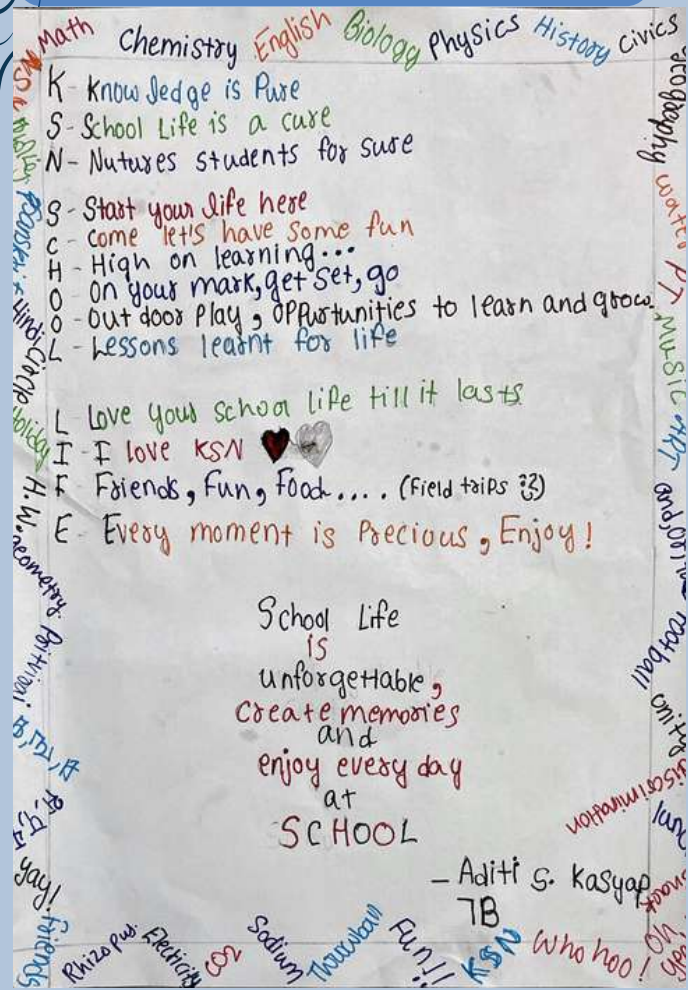 Math Chemistry English Biology Physics History Civics
Geography
K - Knowledge is Pure
S - School Life is a cure
N - Nutures students for sure
S - Start your life here
C - Come let's have some fun
H - High on learning...
O - On your mark, get set, go
O - Outdoor Play, Oppurtunities to learn and grow.
L - Lessons learnt for life
L Love your school life till it lasts
I - I love KSN
F Friends, Fun, Food.... (Field trips
E - Every moment is Precious, Enjoy!
School Life
is
unforgettable,
create memories
and
enjoy every day
at
SCHOOL
- Aditi S. Kasyap
7B
water
PT
Music
ART
football
discrimination
Hindi
Holiday
H.W.
Geometry
yay!
Friends
Rhizopus. Electricity CO2 Sodium Throwball Fun!! KSN Who hoo!